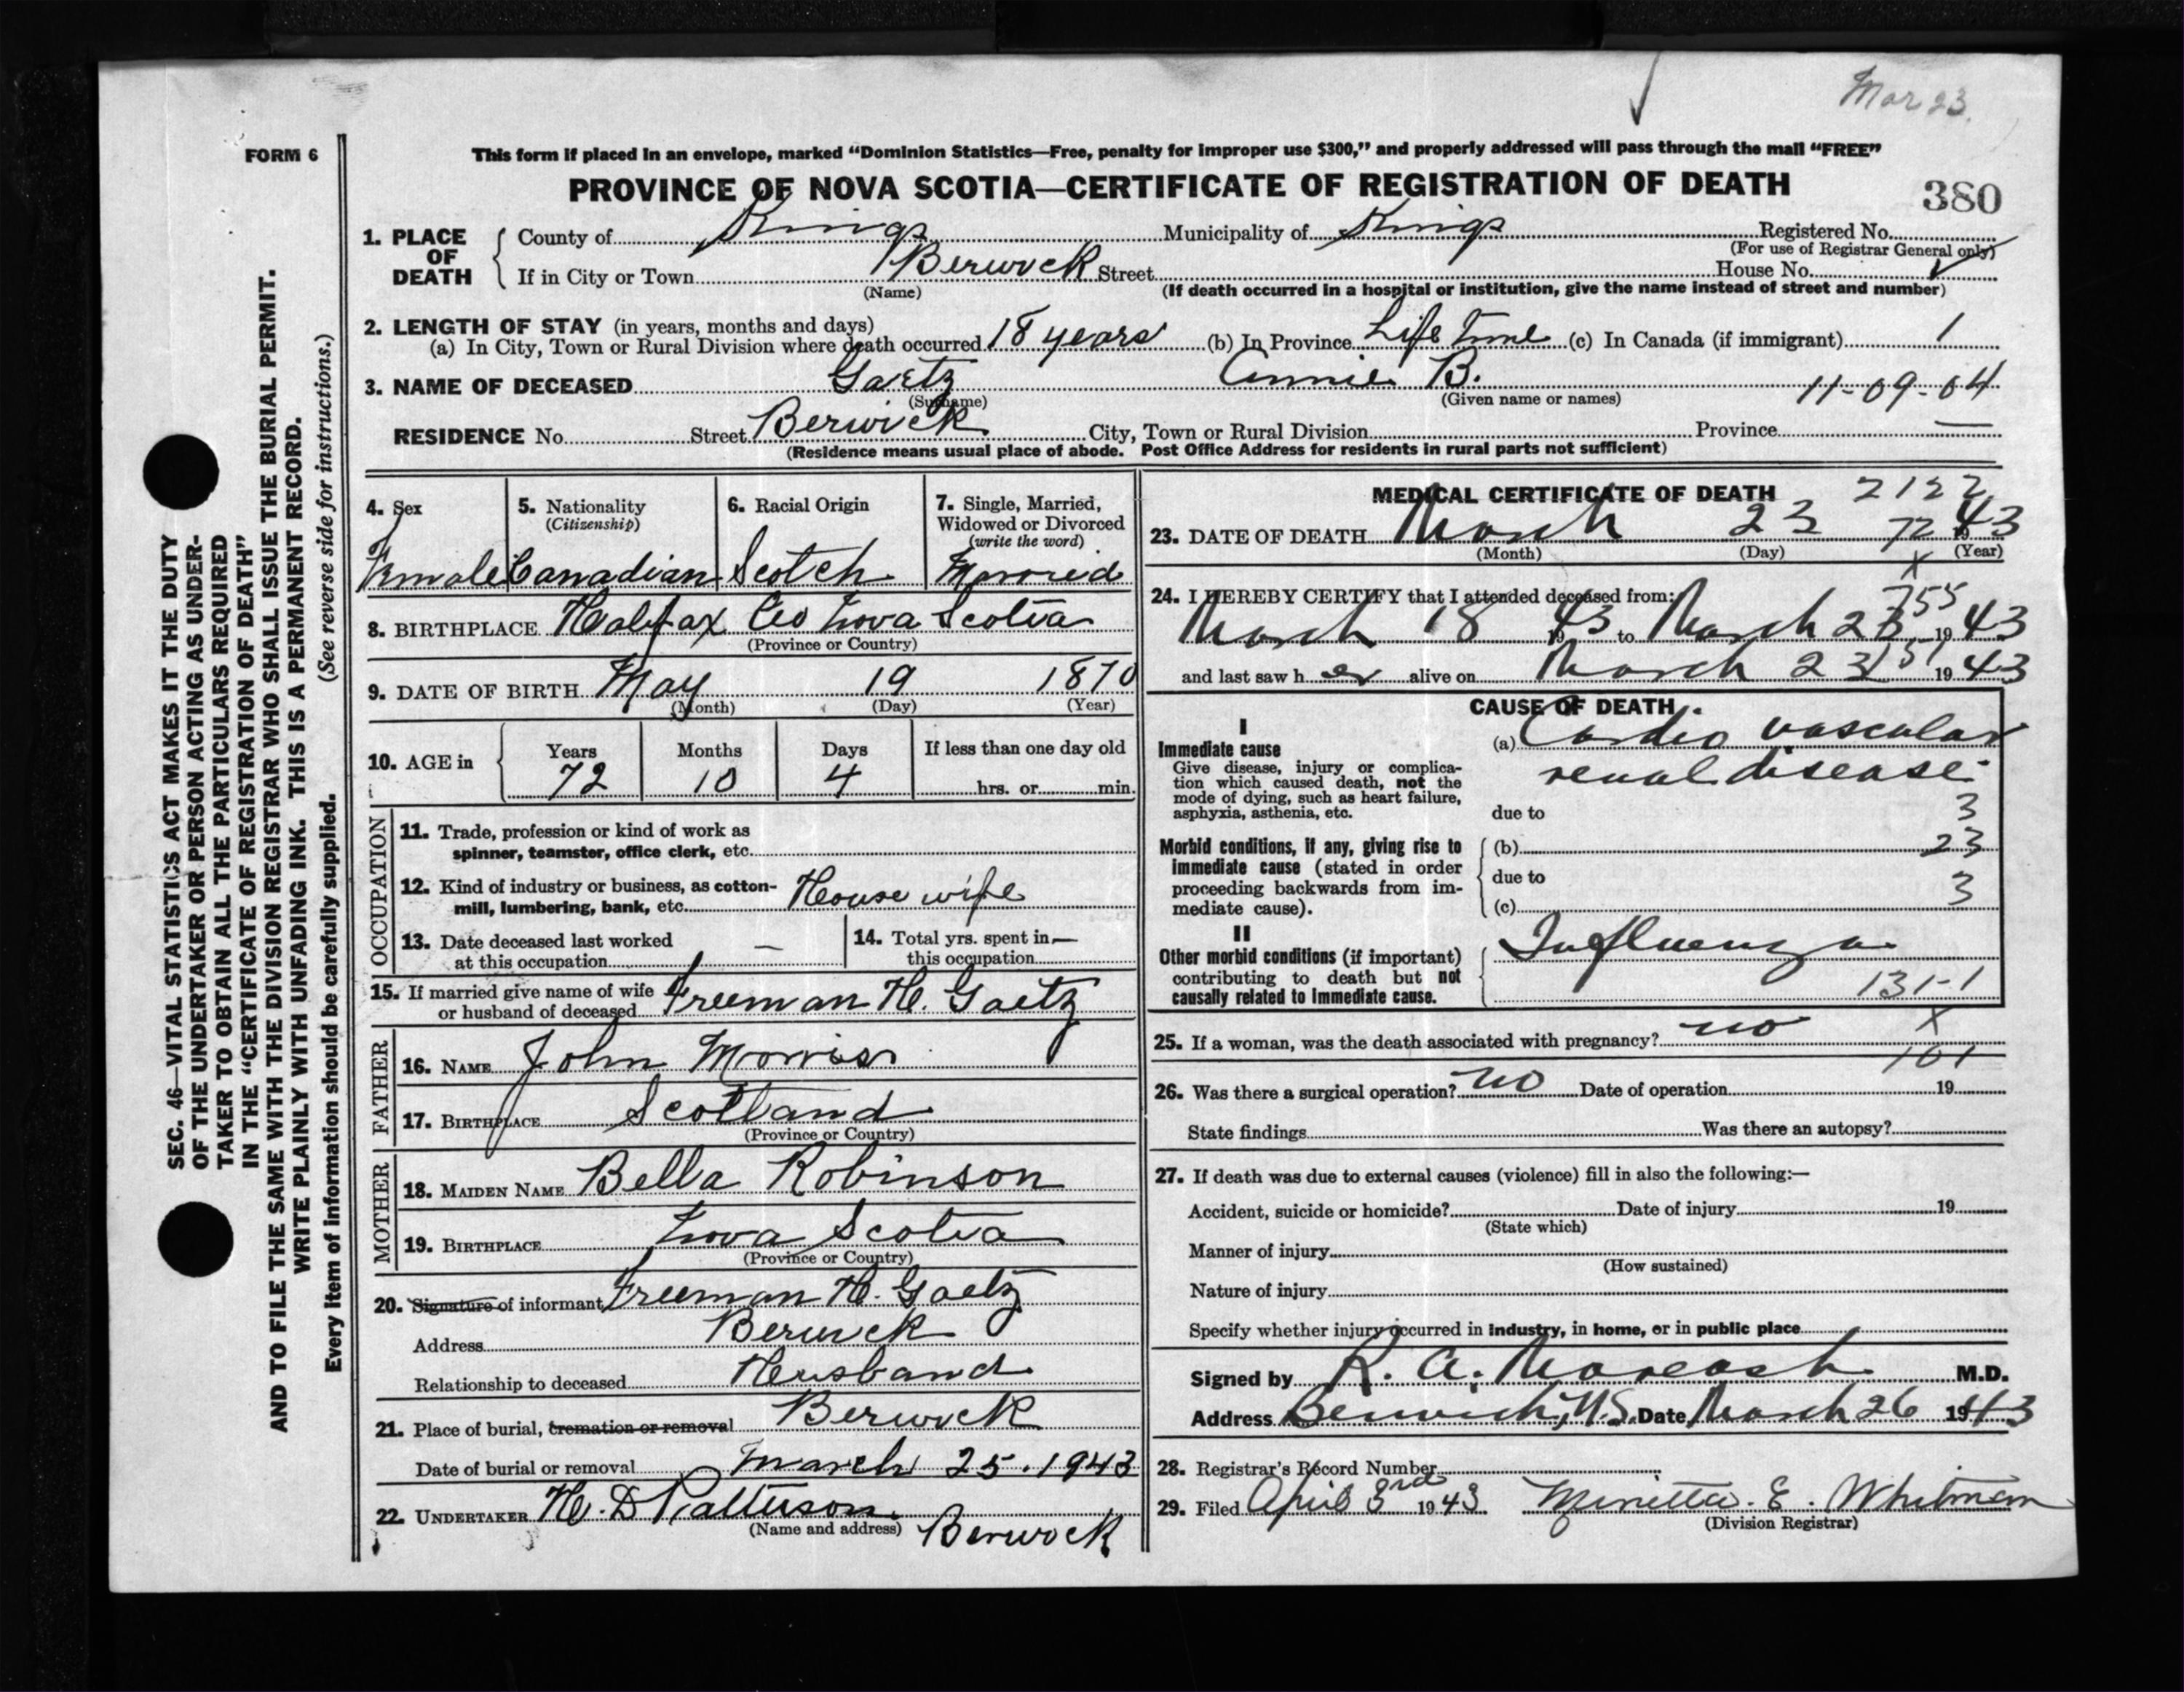 Mar 23.
FORM 6
This form if placed in an envelope, marked “Dominion Statistics—Free, penalty for improper use $300,” and properly addressed will pass through the mail “FREE”
PROVINCE OF NOVA SCOTIA—CERTIFICATE OF REGISTRATION OF DEATH
380
1. PLACE OF DEATH
County of Kings Municipality of Kings Registered No.
(For use of Registrar General only)
If in City or Town Berwick Street House No.
(Name) (If death occurred in a hospital or institution, give the name instead of street and number)
2. LENGTH OF STAY (in years, months and days)
(a) In City, Town or Rural Division where death occurred 18 years (b) In Province Life Time (c) In Canada (if immigrant) 1
3. NAME OF DECEASED Gaetz Annie B. 11-09-04
(Surname) (Given name or names)
RESIDENCE No. Street Berwick City, Town or Rural Division Province —
(Residence means usual place of abode. Post Office Address for residents in rural parts not sufficient)
4. Sex
Female
5. Nationality
(Citizenship)
Canadian
6. Racial Origin
Scotch
7. Single, Married,
Widowed or Divorced
(write the word)
Married
8. BIRTHPLACE Halifax Co Nova Scotia
(Province or Country)
9. DATE OF BIRTH May 19 1870
(Month) (Day) (Year)
10. AGE in
Years Months Days If less than one day old
72 10 4 hrs. or min.
OCCUPATION
11. Trade, profession or kind of work as
spinner, teamster, office clerk, etc.
12. Kind of industry or business, as cotton-
mill, lumbering, bank, etc. House wife
13. Date deceased last worked
at this occupation —
14. Total yrs. spent in —
this occupation
15. If married give name of wife
or husband of deceased Freeman H. Gaetz
FATHER
16. NAME John Morrison
17. BIRTHPLACE Scotland
(Province or Country)
MOTHER
18. MAIDEN NAME Bella Robinson
19. BIRTHPLACE Nova Scotia
(Province or Country)
20. Signature of informant Freeman H. Gaetz
Address Berwick
Relationship to deceased Husband
21. Place of burial, cremation or removal Berwick
Date of burial or removal March 25. 1943
22. UNDERTAKER H. D Patterson
(Name and address) Berwick
MEDICAL CERTIFICATE OF DEATH 2122
23. DATE OF DEATH March 23 72 1943
(Month) (Day) (Year)
X
24. I HEREBY CERTIFY that I attended deceased from: 755
March 18 1943 to March 23, 1943
and last saw her alive on March 23 151 1943
CAUSE OF DEATH
I
Immediate cause
Give disease, injury or complica-
tion which caused death, not the
mode of dying, such as heart failure,
asphyxia, asthenia, etc.
(a) Cardio vascular
renal disease
due to 3
Morbid conditions, if any, giving rise to
immediate cause (stated in order
proceeding backwards from im-
mediate cause).
(b) 23
due to
(c) 3
II
Other morbid conditions (if important)
contributing to death but not
causally related to immediate cause.
Influenza
131-1
25. If a woman, was the death associated with pregnancy? no X
101
26. Was there a surgical operation? no Date of operation 19
State findings Was there an autopsy?
27. If death was due to external causes (violence) fill in also the following:—
Accident, suicide or homicide? Date of injury 19
(State which)
Manner of injury
(How sustained)
Nature of injury
Specify whether injury occurred in industry, in home, or in public place
Signed by R. A. Moreash M.D.
Address Berwick, N.S. Date March 26 1943
28. Registrar's Record Number
29. Filed April 3rd 1943 Minetta. E. Whitman
(Division Registrar)
SEC. 46—VITAL STATISTICS ACT MAKES IT THE DUTY
OF THE UNDERTAKER OR PERSON ACTING AS UNDER-
TAKER TO OBTAIN ALL THE PARTICULARS REQUIRED
IN THE “CERTIFICATE OF REGISTRATION OF DEATH”
AND TO FILE THE SAME WITH THE DIVISION REGISTRAR WHO SHALL ISSUE THE BURIAL PERMIT.
WRITE PLAINLY WITH UNFADING INK. THIS IS A PERMANENT RECORD.
Every item of information should be carefully supplied. (See reverse side for instructions.)